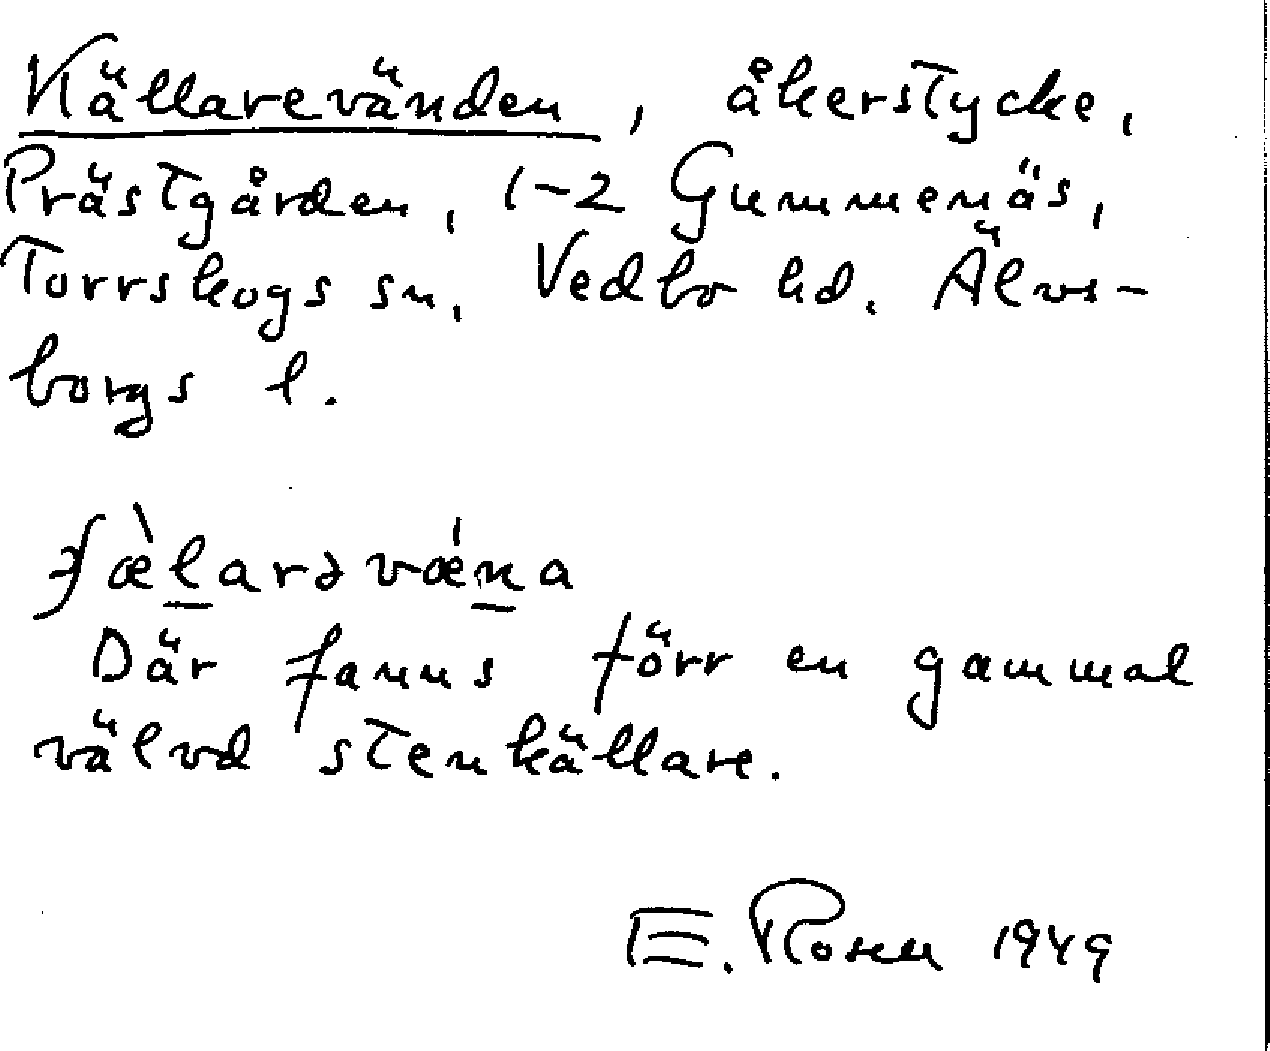 Källarevänden, åkerstycke,
Prästgården, 1-2 Gummenäs,
Torrskogs sn, Vedbo hd. Älvs-
borgs l.
ʃæ̀l̲arəvǽn̲a
Där fanns förr en gammal
välvd stenkällare.
E. Rosen 1949